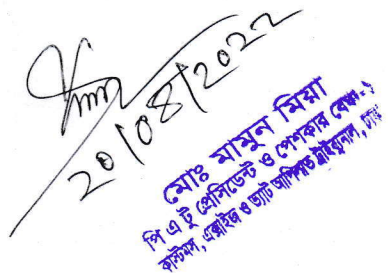 20/08/2022
মোঃ মামুন মিয়া
পি এ টু প্রেসিডেন্ট ও পেশকার বেঞ্চ-১
কাস্টমস, এক্সাইজ ও ভ্যাট আপিলাত ট্রাইব্যুনাল, ঢাকা